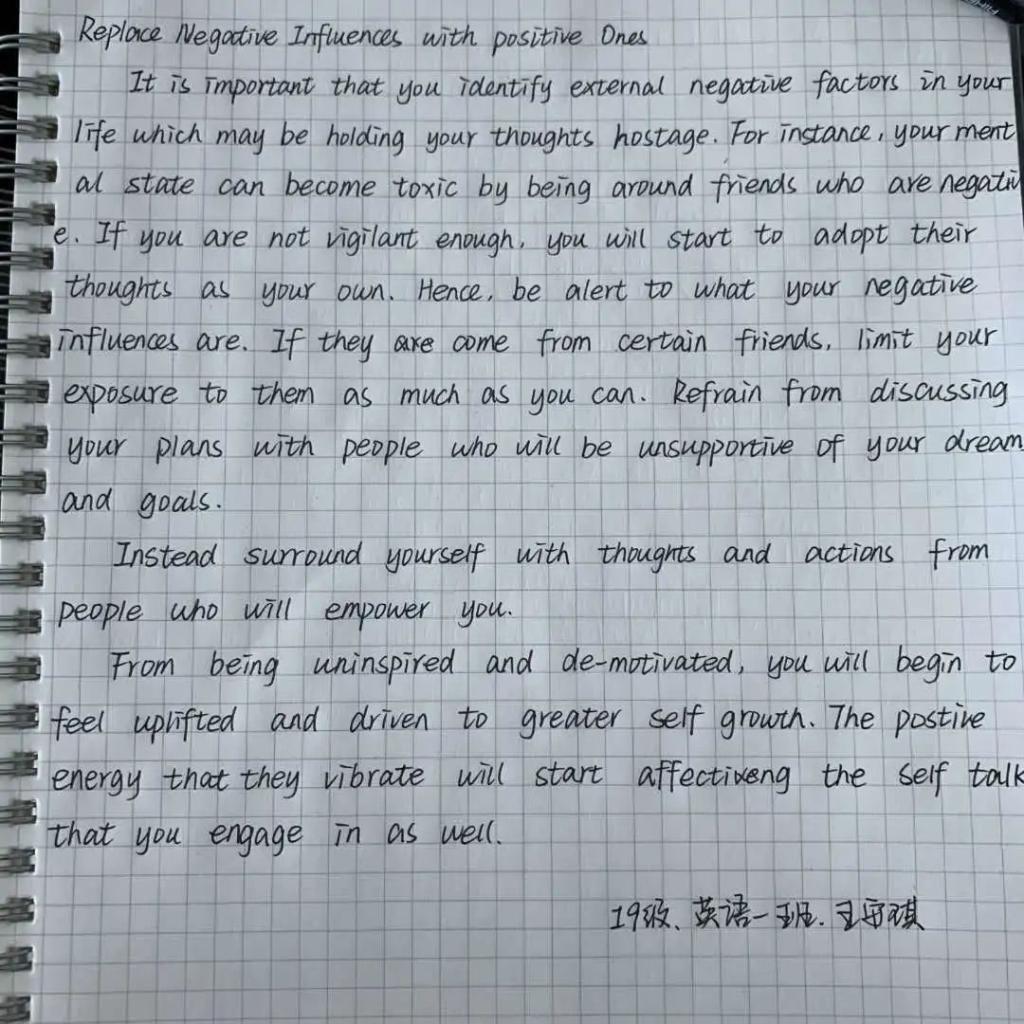 Replace Negative Influences with positive Ones
It is important that you identify external negative factors in your
life which may be holding your thoughts hostage. For instance, your ment
al state can become toxic by being around friends who are negativ
e. If you are not vigilant enough, you will start to adopt their
thoughts as your own. Hence, be alert to what your negative
influences are. If they are come from certain friends, limit your
exposure to them as much as you can. Refrain from discussing
your plans with people who will be unsupportive of your dream
and goals.
Instead surround yourself with thoughts and actions from
people who will empower you.
From being uninspired and de-motivated, you will begin to
feel uplifted and driven to greater self growth. The postive
energy that they vibrate will start the self talk
that you engage in as well.
19级、英语一班.王 琪